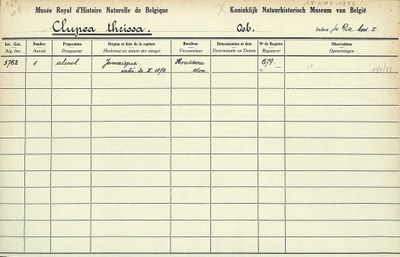 Musée Royal d'Histoire Naturelle de Belgique
Koninklijk Natuurhistorisch Museum van België
Clupea thrissa.
Index
Inv. Gén.
Alg. Inv.
Nombre
Aantal
Préparation
Preparaat
Origine et date de la capture
Herkomst en datum der vangst
Donateur
Verzamelaar
Détermination et date
Determinatie en Datum
N° de Registre
Registernr
Observations
Opmerkingen
5762 1 alcool Jamaïque Rousseau 679.